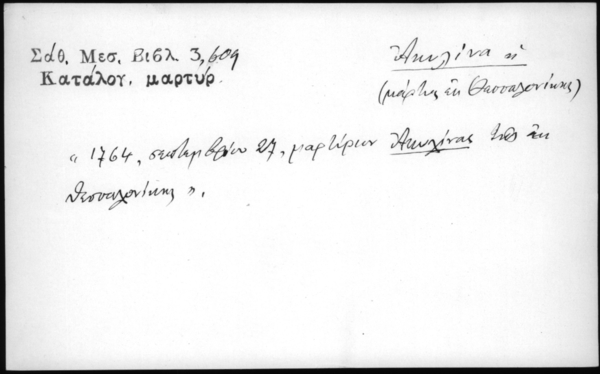 Σάθ. Μεσ. Βιβλ. 3,609
Κατάλογ. μαρτύρ.
Ἀκυλίνα ἡ
(μάρτυς ἐκ Θεσσαλονίκης)
« 1764, σεπτεμβρίου 27, μαρτύριον Ἀκυλίνας τῆς ἐκ
Θεσσαλονίκης ».